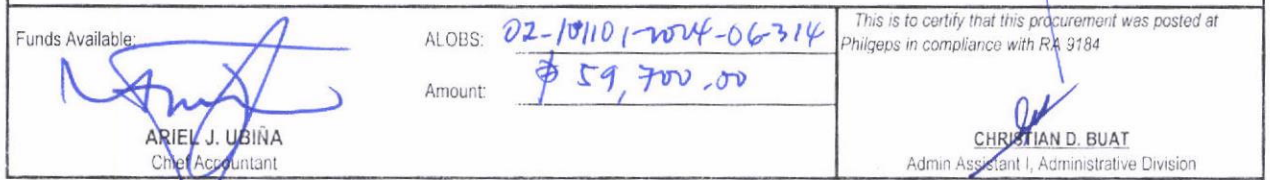 Funds Available:
ARIEL J. UBIÑA
Chief Accountant
ALOBS: 02-101101-2024-06-314
Amount: ₱ 59,700.00
This is to certify that this procurement was posted at
Philgeps in compliance with RA 9184
CHRISTIAN D. BUAT
Admin Assistant I, Administrative Division